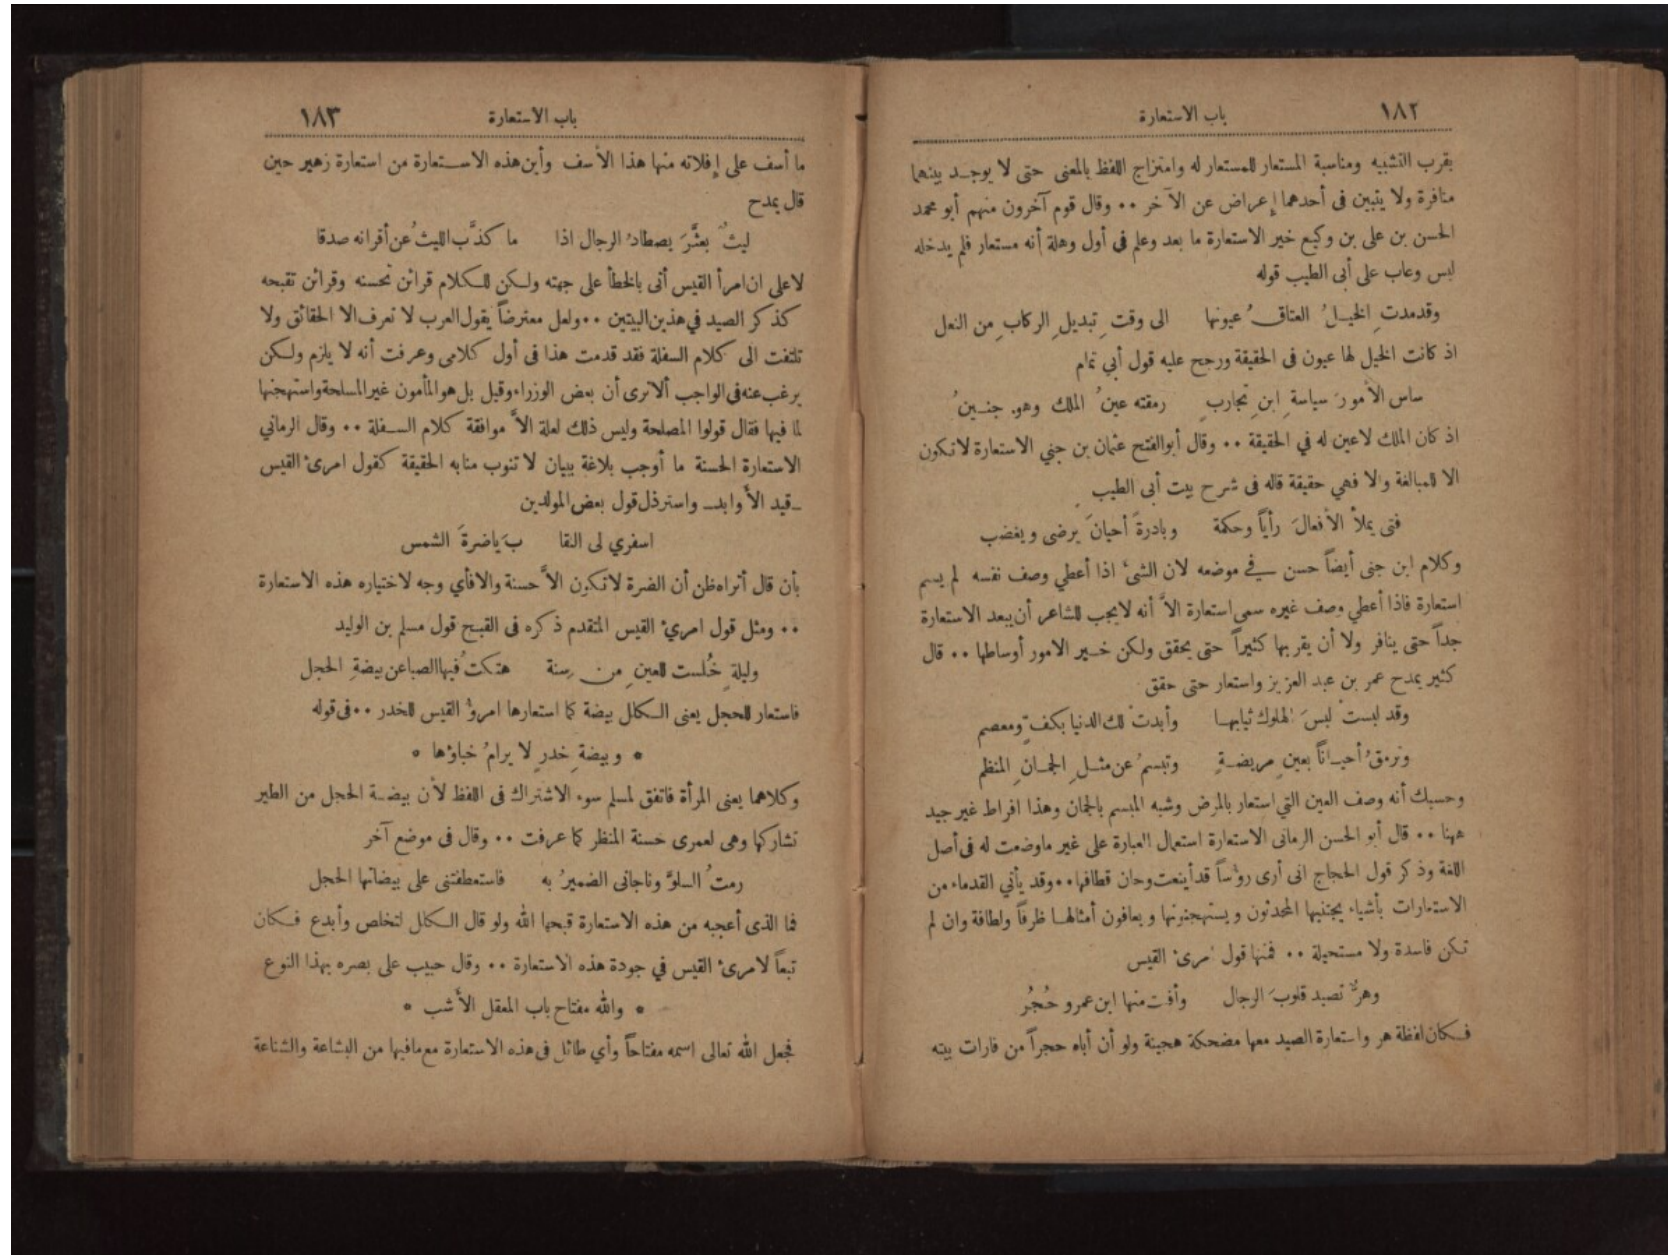 ١٨٢
باب الاستعارة
بقرب التشبيه ومناسبة المستعار للمستعار له وامتزاج اللفظ بالمعنى حتى لا يوجد بينهما
منافرة ولا يتبين فى أحدهما إعراض عن الآخر ٠٠ وقال قوم آخرون منهم أبو محمد
الحسن بن على بن وكيع خير الاستعارة ما بعد وعلم فى أول وهلة أنه مستعار فلم يدخله
لبس وعاب على أبى الطيب قوله
وقد مدتِ الخيلُ العتاقُ عيونها الى وقتِ تبديلِ الركابِ من النعل
اذ كانت الخيل لها عيون فى الحقيقة ورجح عليه قول أبي تمام
ساس الأمورَ سياسة ابنِ تجاربٍ رمقته عينُ الملك وهو جنينُ
اذ كان الملك لاعين له في الحقيقة ٠٠ وقال أبوالفتح عثمان بن جني الاستعارة لاتكون
الا للمبالغة والا فهي حقيقة قاله فى شرح بيت أبى الطيب
فتى يملأ الأفعالَ رأياً وحكمة وبادرةً أحيانَ يرضى ويغضب
وكلام ابن جنى أيضاً حسن في موضعه لان الشئ اذا أعطي وصف نفسه لم يسم
استعارة فاذا أعطي وصف غيره سمى استعارة الاَّ أنه لايجب للشاعر أن يبعد الاستعارة
جداً حتى ينافر ولا أن يقربها كثيراً حتى يحقق ولكن خير الامور أوساطها ٠٠ قال
كثير يمدح عمر بن عبد العزيز واستعار حتى حقق
وقد لبستْ لبسَ الهلوك ثيابها وأبدتْ لك الدنيا بكفٍّ ومعصم
وترمقُ أحياناً بعينٍ مريضةٍ وتبسمُ عن مثلِ الجمانِ المنظم
وحسبك أنه وصف العين التي استعار بالمرض وشبه المبسم بالجمان وهذا افراط غير جيد
ههنا ٠٠ قال أبو الحسن الرمانى الاستعارة استعمال العبارة على غير ماوضعت له فى أصل
اللغة وذكر قول الحجاج انى أرى رؤساً قد أينعت وحان قطافها ٠٠ وقد يأتي القدماء من
الاستعارات بأشياء يجتنبها المحدثون ويستهجنونها ويعافون أمثالها ظرفاً ولطافة وان لم
تكن فاسدة ولا مستحيلة ٠٠ فمنها قول امرئ القيس
وهرٌّ تصيد قلوبَ الرجال وأفلت منها ابن عمرو حُجُرُ
فكان لفظة هر واستعارة الصيد معها مضحكة هجينة ولو أن أباه حجراً من فارات بيته
١٨٣
باب الاستعارة
ما أسف على إفلاته منها هذا الأسف وأين هذه الاستعارة من استعارة زهير حين
قال يمدح
ليثٌ بعثَّرَ يصطادُ الرجال اذا ما كذَّب الليثُ عن أقرانه صدقا
لاعلى ان امرأ القيس أتى بالخطأ على جهته ولكن للكلام قرائن تحسنه وقرائن تقبحه
كذكر الصيد في هذين البيتين ٠٠ ولعل معترضاً يقول العرب لا تعرف الا الحقائق ولا
تلتفت الى كلام السفلة فقد قدمت هذا فى أول كلامى وعرفت أنه لا يلزم ولكن
يرغب عنه في الواجب ألاترى أن بعض الوزراء وقيل بل هو المأمون غير المسلحة واستهجنها
لما فيها فقال قولوا المصلحة وليس ذلك لعلة الاَّ موافقة كلام السفلة ٠٠ وقال الرماني
الاستعارة الحسنة ما أوجب بلاغة ببيان لا تنوب منابه الحقيقة كقول امرئ القيس
ـ قيد الأوابد ـ واسترذل قول بعض المولدين
اسفري لى النقا بَ ياضرةَ الشمس
بأن قال أتراه ظن أن الضرة لاتكون الاَّ حسنة والا فأي وجه لاختياره هذه الاستعارة
٠٠ ومثل قول امرئ القيس المتقدم ذكره فى القبح قول مسلم بن الوليد
وليلةٍ خُلست للعينِ من سِنة هتكتُ فيها الصبا عن بيضةِ الحجل
فاستعار للحجل يعنى الكلل بيضة كما استعارها امرؤ القيس للخدر ٠٠ فى قوله
* وبيضةِ خدرٍ لا يرامُ خباؤها *
وكلاهما يعنى المرأة فاتفق لمسلم سوء الاشتراك فى اللفظ لأن بيضة الحجل من الطير
تشاركها وهى لعمرى حسنة المنظر كما عرفت ٠٠ وقال فى موضع آخر
رمتُ السلوَّ وناجانى الضميرُ به فاستعطفتنى على بيضاتها الحجل
فما الذى أعجبه من هذه الاستعارة قبحها الله ولو قال الكلل لتخلص وأبدع فكان
تبعاً لامرئ القيس في جودة هذه الاستعارة ٠٠ وقال حبيب على بصره بهذا النوع
* والله مفتاح باب المعقل الأشب *
فجعل الله تعالى اسمه مفتاحاً وأي طائل فى هذه الاستعارة مع مافيها من البشاعة والشناعة